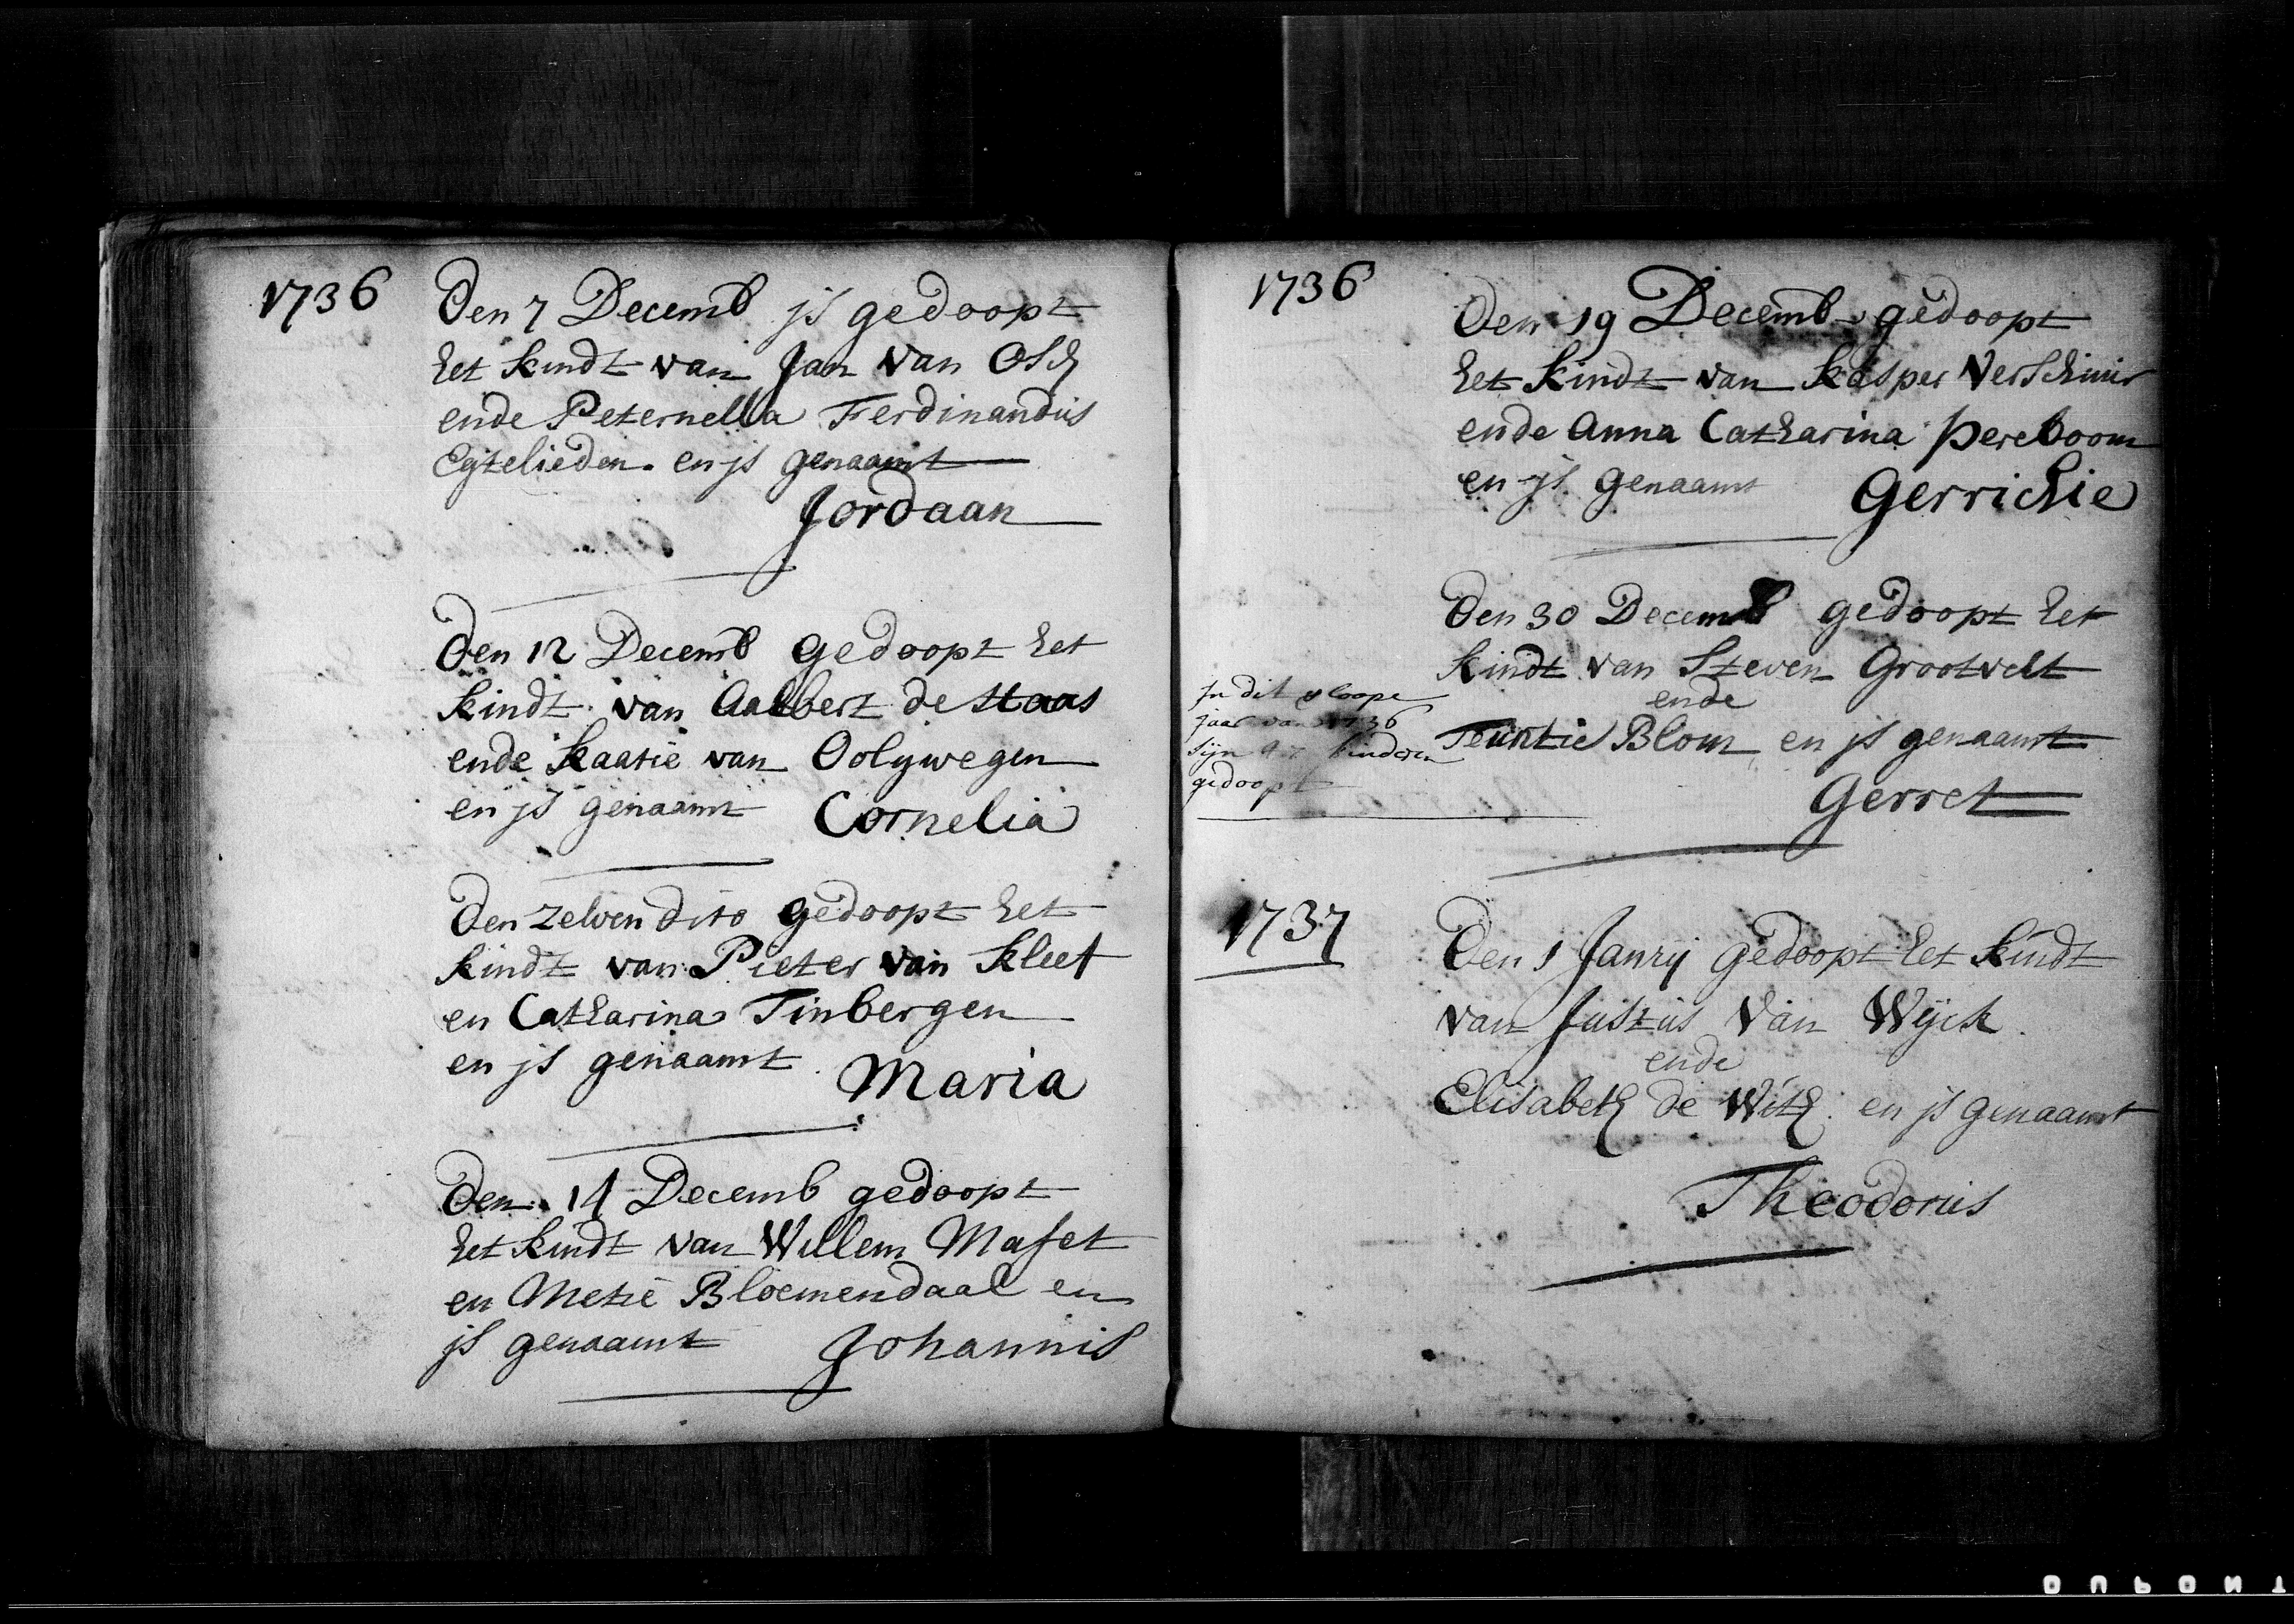 1736
Den 7 Decemb js gedoopt
het kindt van Jan van Osch
ende Peternella Ferdinandus
Egtelieden. en js genaamt
Jordaan
Den 12 Decemb gedoopt het
kindt van Aalbert de Haas
ende Kaatie van Oolywegen
en js genaamt Cornelia
Den zelven dito gedoopt het
kindt van Pieter van Kleef
en Catharina Tinbergen
en js genaamt Maria
Den 14 Decemb gedoopt
het kindt van Willem Mafet
en Metie Bloemendaal en
js genaamt Johannis
1736
Den 19 Decemb gedoopt
het kindt van Kasper Verschuir
ende Anna Catharina Pereboom
en js genaamt Gerrichie
Den 30 Decemb gedoopt het
kindt van Steven Grootvelt
ende
Teuntie Blom en js genaamt
Gerret
In dit loope
jaar van 1736
sijn kinderen
gedoopt
1737
Den 1 Janrij gedoopt het kindt
van Justus van Wijck
ende
Elisabeth de With en js genaamt
Theodorus
DUPONT